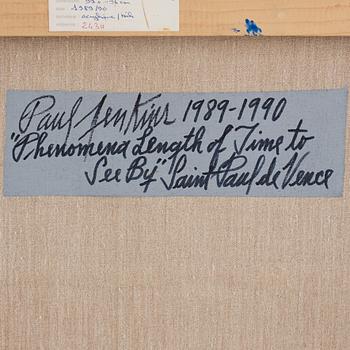 1989/90
acrylique / toile
2430
Paul Jenkins 1989-1990
"Phenomena Length of Time to
See By" Saint Paul de Vence